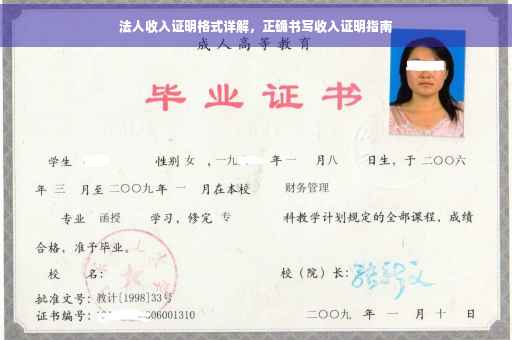 法人收入证明格式详解，正确书写收入证明指南
成人高等教育
毕业证书
学生 性别 女 ，一九 年 一 月 八 日生，于 二〇〇六
年 三 月至 二〇〇九 年 一 月在本校 财务管理
专业 函授 学习，修完 专 科教学计划规定的全部课程，成绩
合格，准予毕业。
校 名： 校（院）长：
批准文号：教计[1998]33号
证书编号： 06001310 二〇〇九 年 一 月 十 日